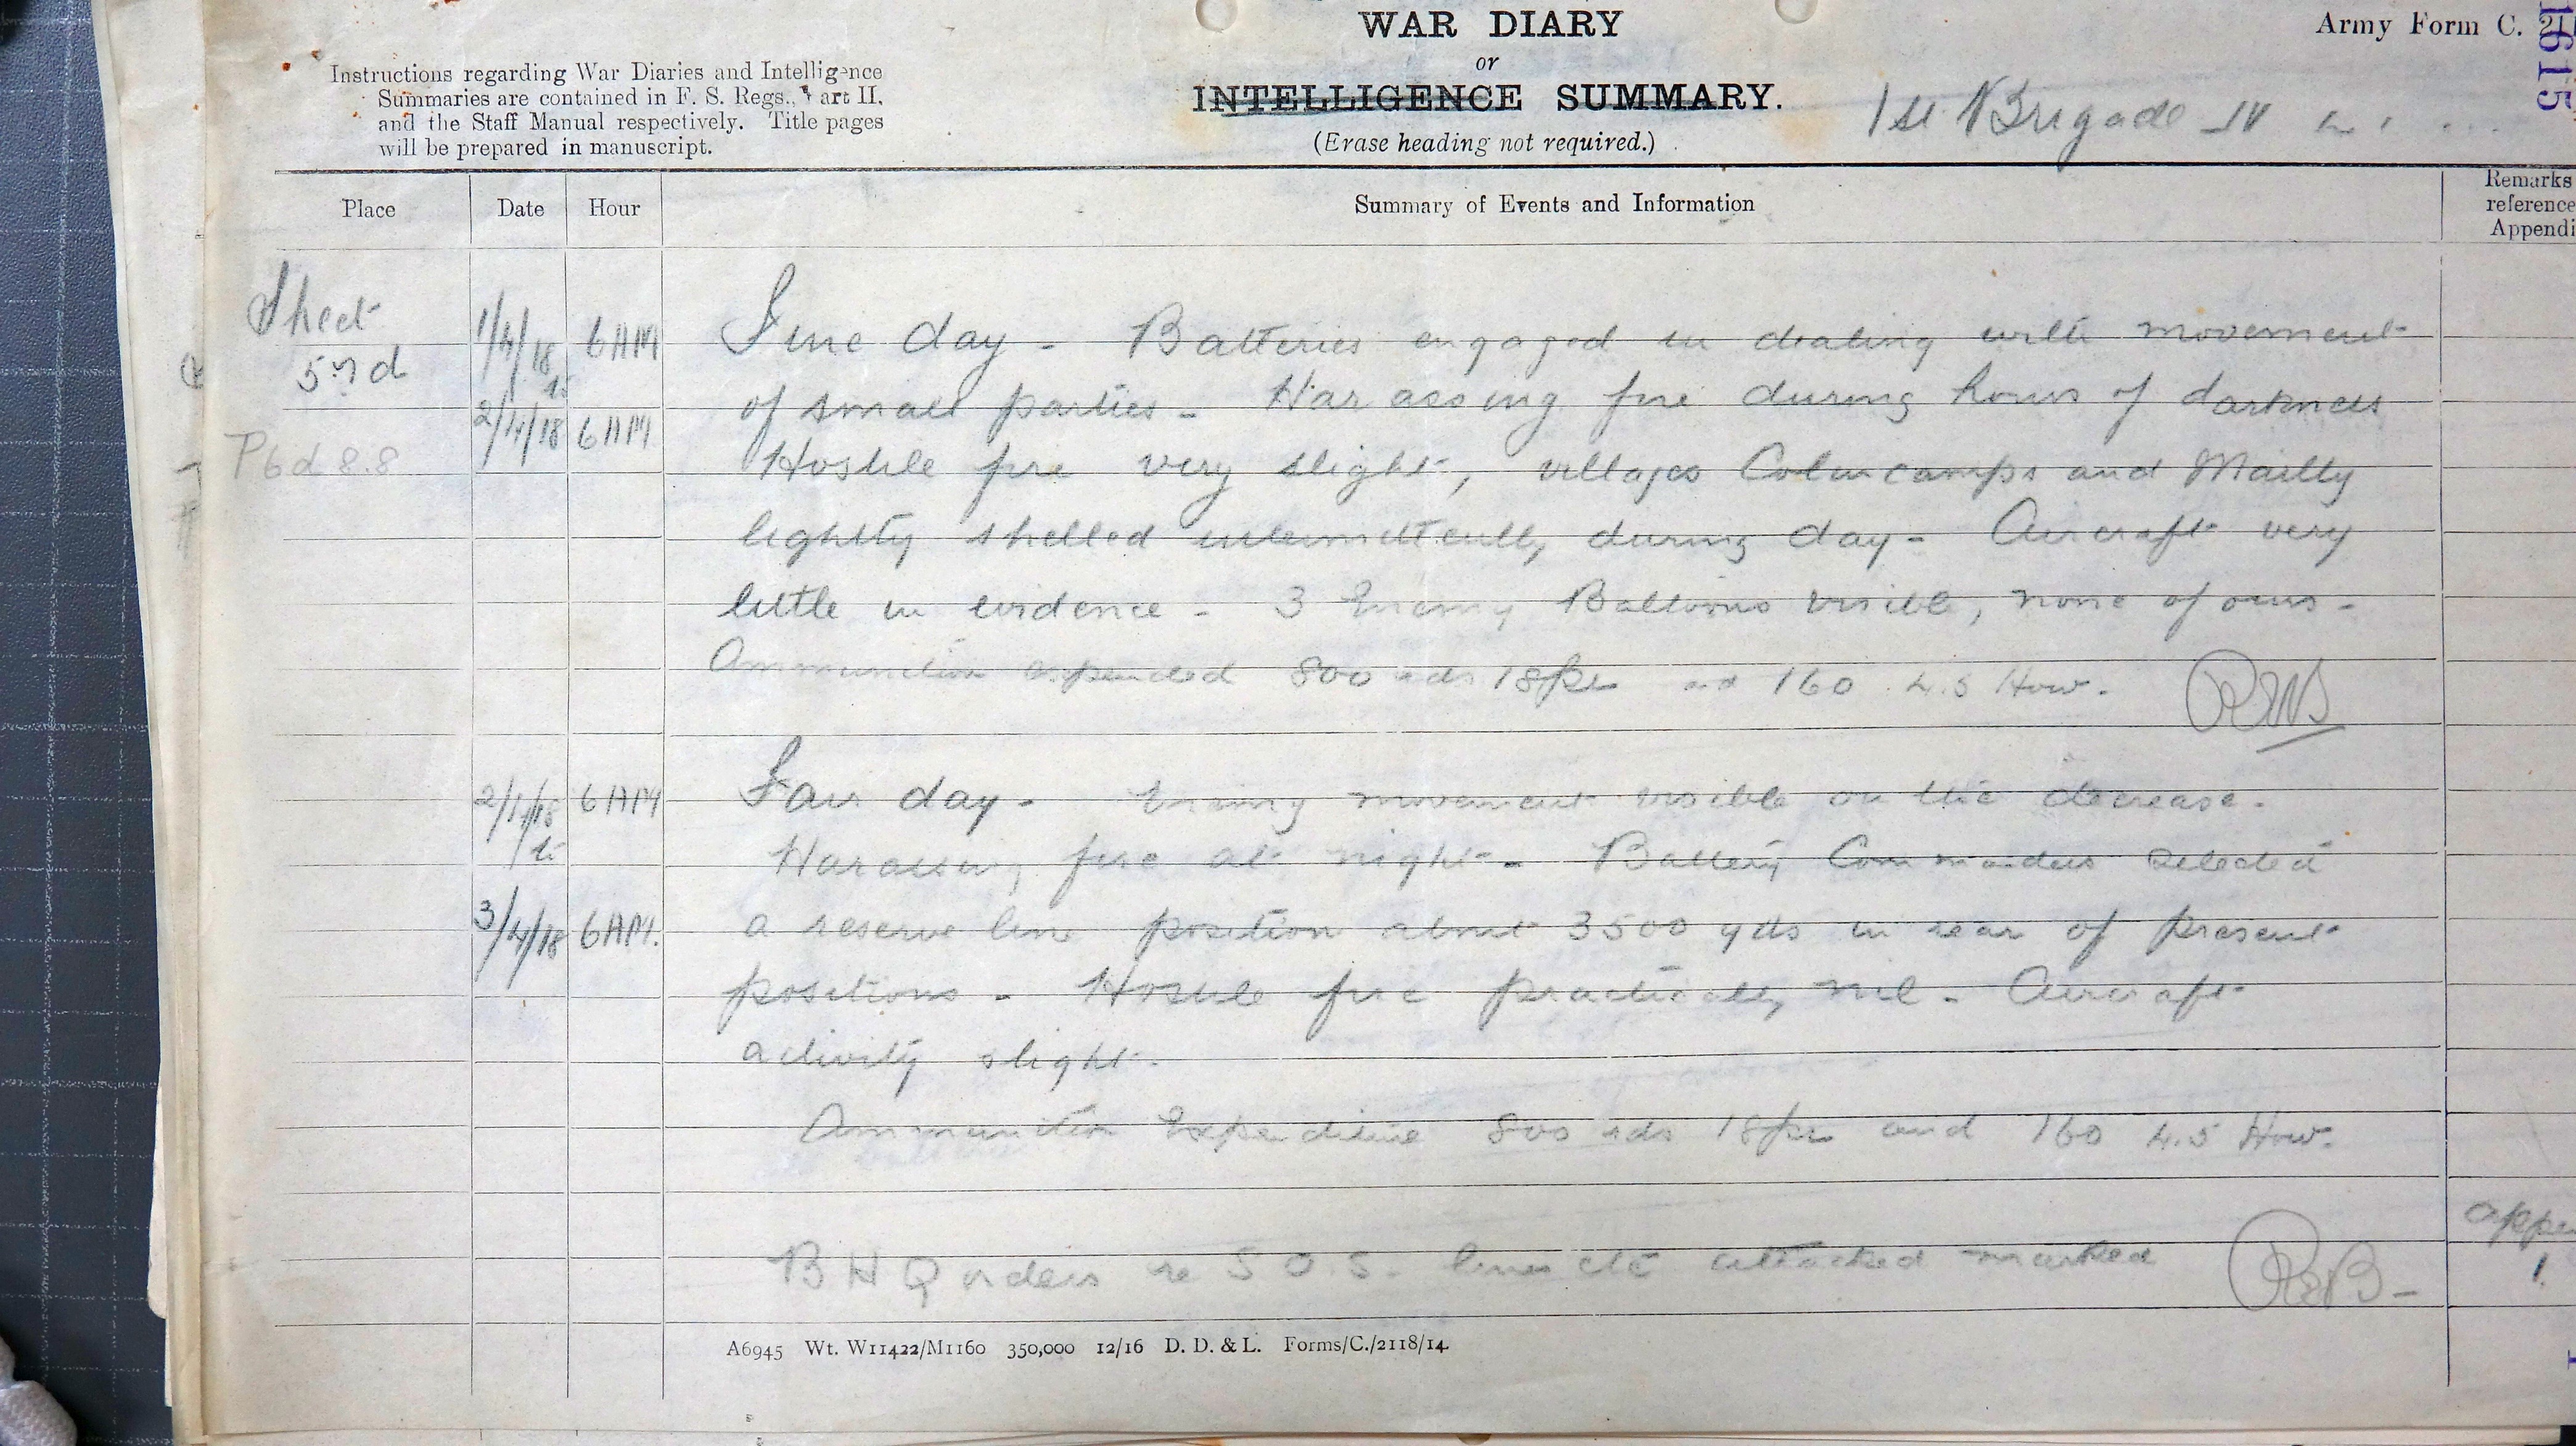 WAR DIARY
or
INTELLIGENCE SUMMARY.
(Erase heading not required.)
Army Form C.
1615
Instructions regarding War Diaries and Intelligence
Summaries are contained in F. S. Regs., Part II.
and the Staff Manual respectively. Title pages
will be prepared in manuscript.
1st Brigade
Place Date Hour Summary of Events and Information Remarks
reference
Appendi
Sheet
57d
P6d 8.8
1/4/18 6 AM Fine day - Batteries engaged in dealing with movement
to
2/4/18 6 AM of small parties - Harassing fire during hours of darkness
Hostile fire very slight, villages Colincamps and Mailly
lightly shelled intermittently during day - Aircraft very
little in evidence - 3 Enemy Balloons visible, none of ours -
Ammunition expended 800 rds 18pr and 160 4.5 How.
2/4/18 6 AM Fair day - Enemy movement visible on the decrease.
to Harassing fire at night - Battery Commanders selected
3/4/18 6 AM. a reserve line position about 3500 yds in rear of present
positions - Hostile fire practically nil - Aircraft
activity slight.
Ammunition Expenditure 800 rds 18pr and 160 4.5 How.
BHQ orders re S.O.S. lines etc attached marked appe
1.
A6945 Wt. W11422/M1160 350,000 12/16 D. D. & L. Forms/C./2118/14.